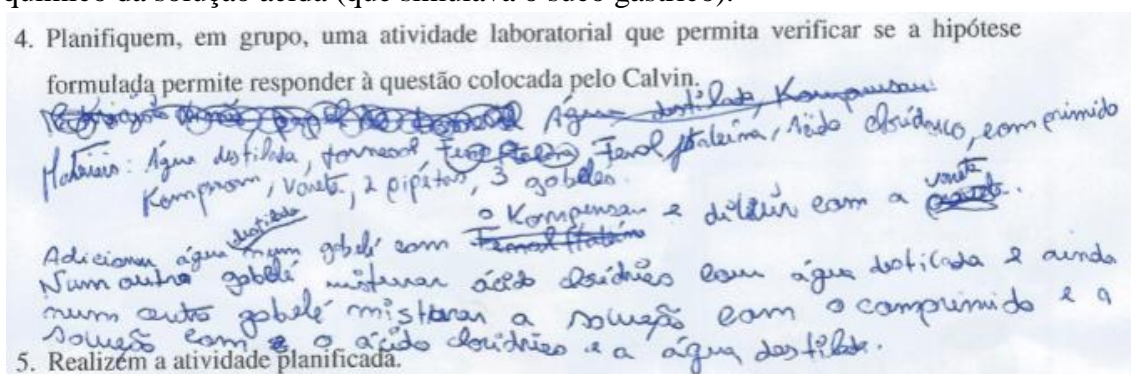 químico da solução ácida (que simulava o suco gástrico).
4. Planifiquem, em grupo, uma atividade laboratorial que permita verificar se a hipótese
formulada permite responder à questão colocada pelo Calvin.
Água destilada, Kompensan
Materiais: Água destilada, tornesol Fenolftaleína, Ácido clorídrico, comprimido
Kompensan, vareta, 2 pipetas, 3 gobelés.
Adicionar água destilada num gobelé com o Kompensan e diluir com a vareta.
Num outro gobelé misturar ácido clorídrico com água destilada e ainda
num outro gobelé misturar a solução com o comprimido e a
solução com o ácido clorídrico e a água destilada.
5. Realizem a atividade planificada.